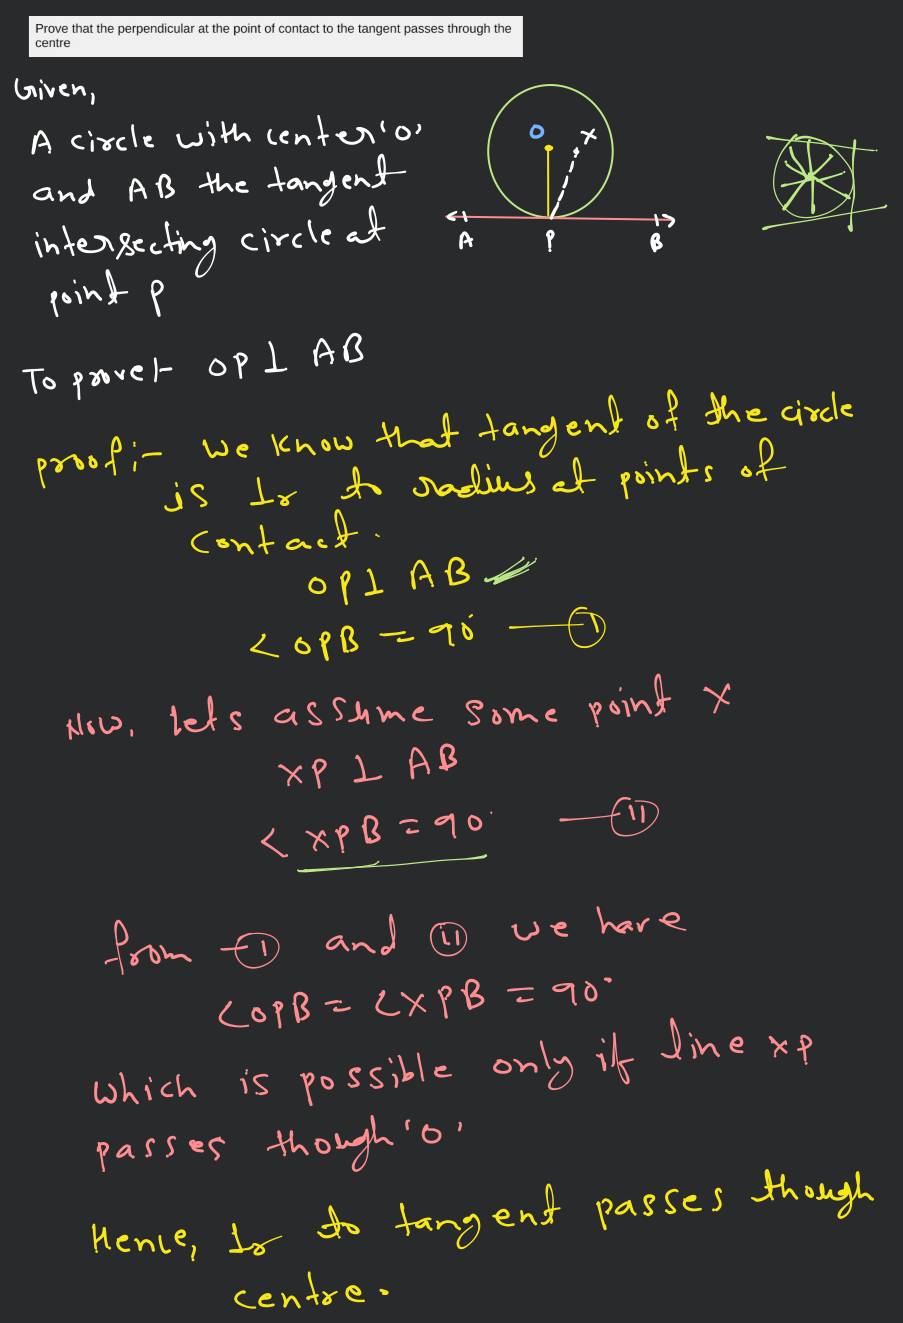 Prove that the perpendicular at the point of contact to the tangent passes through the
centre
Given,
A circle with center 'O'
and AB the tangent
intersecting circle at
point P
O
X
A
P
B
To prove:- OP ⊥ AB
proof:- We know that tangent of the circle
is ⊥r to radius at points of
contact.
OP ⊥ AB
<OPB = 90° — I
Now, lets assume some point X
XP ⊥ AB
<XPB = 90° — II
from I and II we have
<OPB = <XPB = 90°
Which is possible only if line XP
passes though 'O'
Hence, ⊥r to tangent passes though
centre.